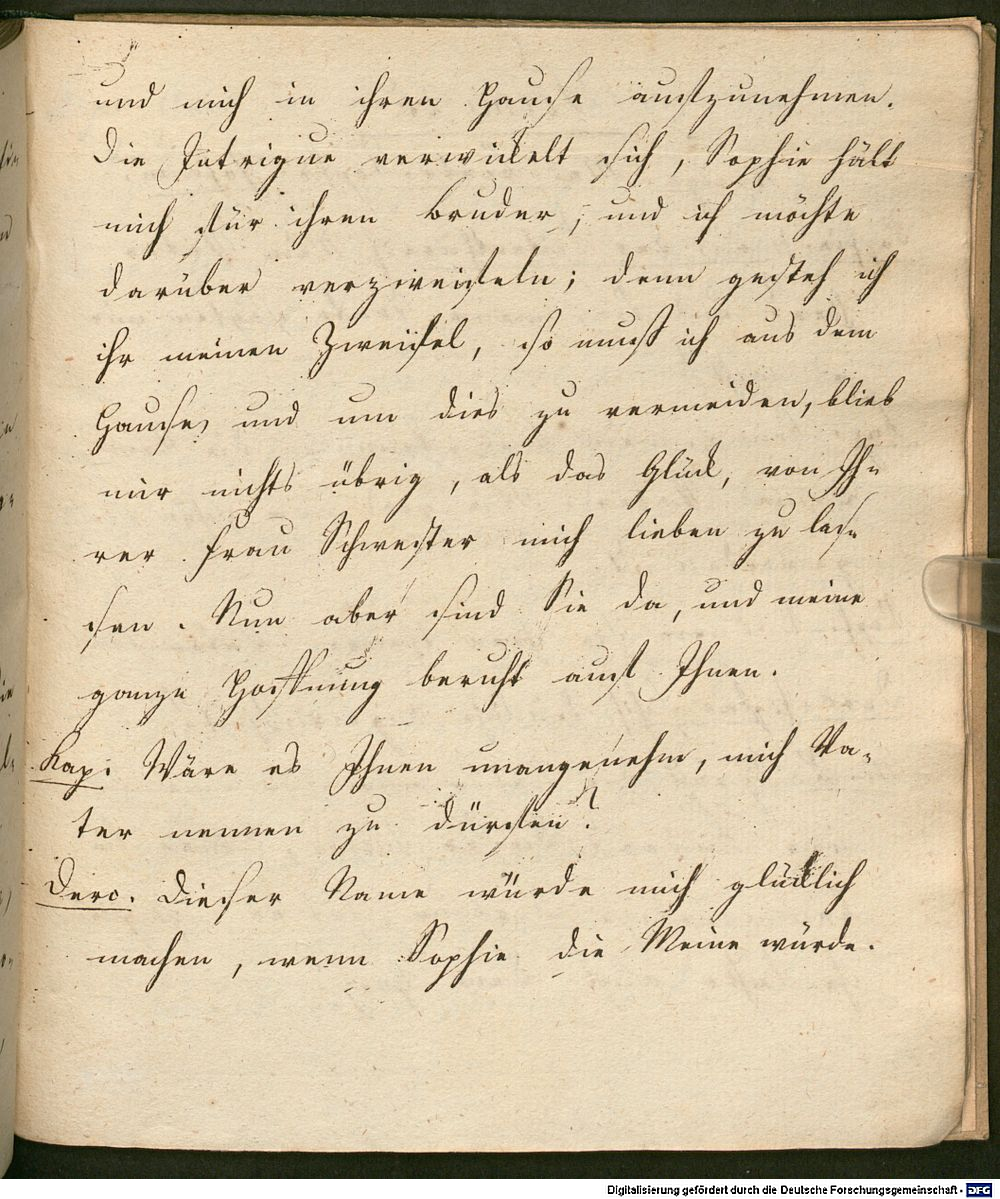 und mich in ihren Hause aufzunehmen.
Die Intrigue verwickelt sich, Sophie hält
mich für ihren Bruder, und ich möchte
darüber verzweifeln; denn gesteh ich
ihr meinen Zweifel, so muß ich aus dem
Hause, und um dies zu vermeiden, blieb
mir nichts übrig, als das Glück, von Ih-
rer Frau Schwester mich lieben zu las-
sen. Nun aber sind Sie da, und meine
ganze Hoffnung beruht auf Ihnen.
Kap. Wäre es Ihnen unangenehm, mich Va-
ter nennen zu dürfen?
Derc. Dieser Name würde mich glücklich
machen, wenn Sophie die Meine würde.
Digitalisierung gefördert durch die Deutsche Forschungsgemeinschaft - DFG